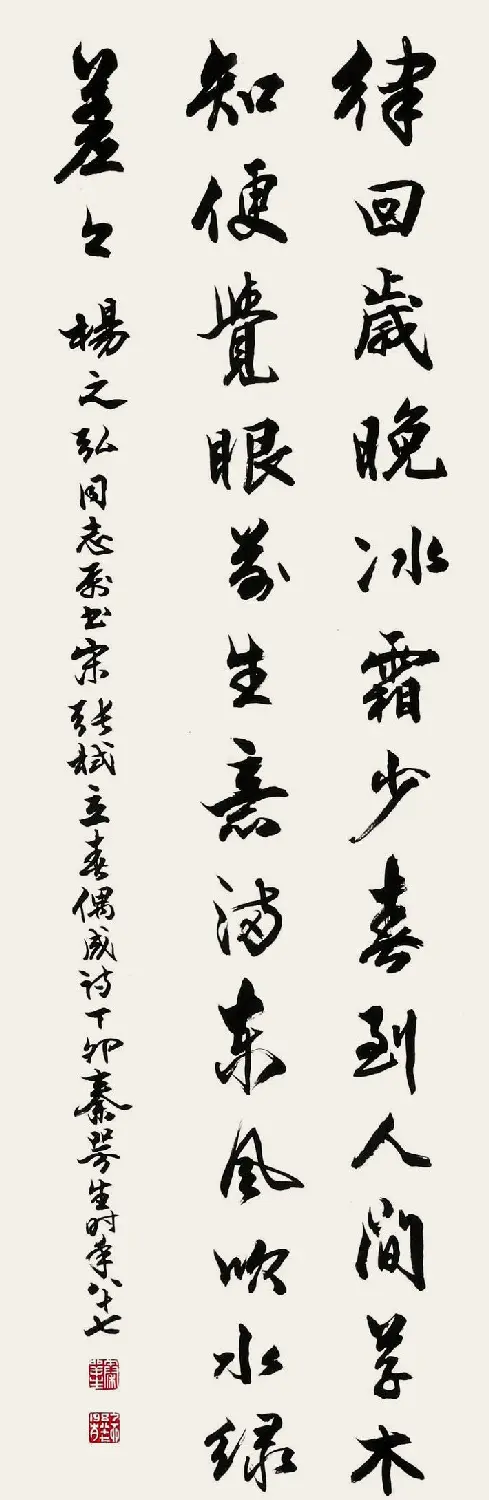 律回歲晚冰霜少春到人间草木
知便覺眼前生意满东风吹水绿
差々 楊之弘同志属书宋张栻立春偶成诗丁卯秦咢生时年八十七